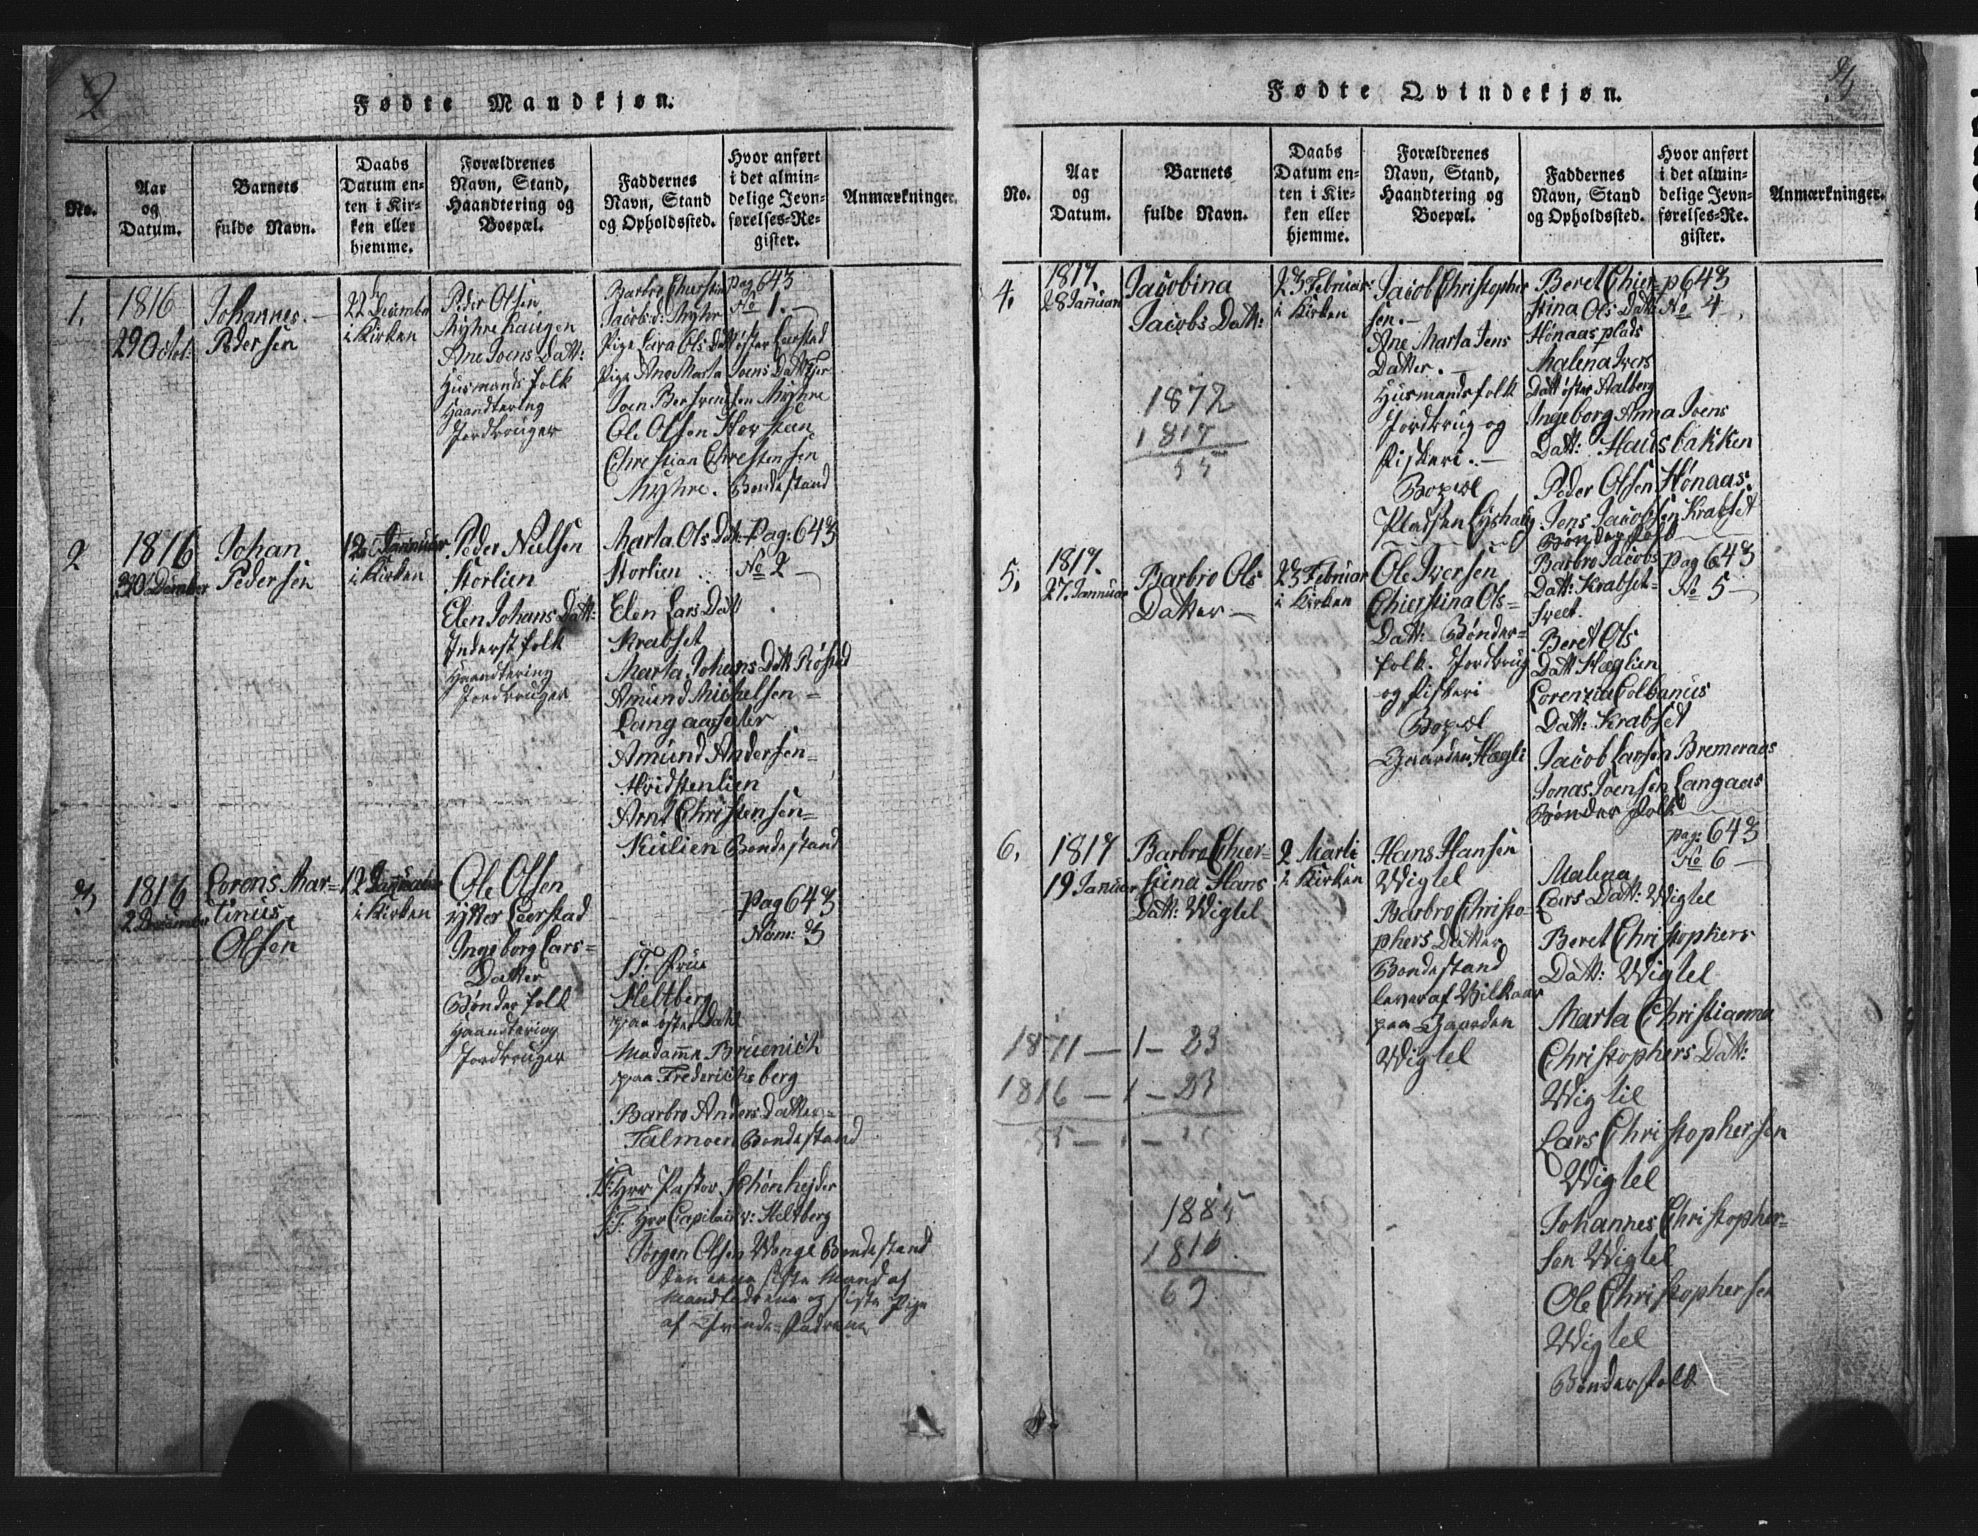 2
Fødte Mandkjøn.
No.
Aar
og
Datum.
Barnets
fulde Navn.
Daabs
Datum en-
ten i Kir-
ken eller
hjemme.
Forældrenes
Navn, Stand,
Haandtering og
Boepæl.
Faddernes
Navn, Stand
og Opholdssted.
Hvor anført
i det almin-
delige Jevn-
førelses-Re-
gister.
Anmærkninger.
1.
1816
29 Octob:
Johannes.
Pedersen
22 December
i Kirken
Peder Olsen
Myhrehaugen
Ane Joens Datt:
Husmands folk
Haandtering
Jordbruger
Barbro Chierstin
Jacobsd: Myhr
Pige Sara Ols Datt øster Leerstad
Pige Ane Marta Joens Datt
Joen Berhrendsen Myhre
Ole Olsen Storsteen
Christian Christensen
Myhre. Bondestand
Pag 643
No 1.
2
1816
30 December
Johan
Pedersen
12 Januar
i Kirken
Peder Nielsen
Storlien
Elen Johans Datt:
Inderst folk
Haandtering
Jordbruger
Marta Ols Datt
Storlien
Elen Lars Datt
Krabset
Marta Johans Datt Røstad
Amund Michelsen
Langaassæter
Amund Andersen
Hvidstenlien
Arnt Christensen
Kulien Bondestand
Pag: 643
No 2
3
1816
2 December
Lorens Mar-
tinus
Olsen
12 Januar
i Kirken
Ole Olsen
ytter Leerstad
Ingeborg Lars-
Datter
Bønder folk
Haandtering
Jordbruger
Pag 643
Num: 3
S.T. Frue
Heltberg
paa øster Dahl
Madamme Bruenich
paa Frederichsberg
Barbro Anders Datter
Talmoen Bondestand
S.T. Hrr Pastor Schønhejder
S.T. Hrr Capitain v: Heltberg
Jørgen Olsen Wenge Bondestand
den eene sidste Mand af
Mandfadrene og sidste Pige
af Qvinde-Fadrene
3
Fødte Qvindekjøn.
No.
Aar
og
Datum.
Barnets
fulde Navn.
Daabs
Datum en-
ten i Kir-
ken eller
hjemme.
Forældrenes
Navn, Stand,
Haandtering og
Boepæl.
Faddernes
Navn, Stand
og Opholdssted.
Hvor anført
i det almin-
delige Jevn-
førelses-Re-
gister.
Anmærkninger.
4.
1817.
28 Januari
Jacobina
Jacobs Datt:
23 Februar
i Kirken
Jacob Christopher
sen.
Ane Marta Jens
Datter.
Husmandsfolk
Jordbrug og
Fiskeri.
Bopæl
Pladsen Lyshaug
Beret Chier-
stina Ols Datt
Hønaasplads
Malena Ivers
Datt øster Aalberg
Ingeborg Anna Joens
Datt: Hausbakken
Peder Olsen Hønaas.
Jens Jacobsen Krabset
Bønder folk
p 643
No 4
1872
1817
55
5.
1817.
27. Januar
Barbro Ols
Datter
23 Februar
i Kirken
Ole Iversen
Chierstina Ols-
Datt: Bønder-
folk. Jordbrug
og Fiskeri
Bopæl
Gaarden Hægli
Barbro Jacobs
Datt: Krabset-
sveet.
Beret Ols
Datt Hæglien
Lorenzia Colbanus
Datt: Krabset
Jacob Larsen Bremeraas
Jonas Joensen Langaas
Bønder folk
pag 643
No 5
6.
1817
19 Januar
Barbro Chier-
stina Hans
Datt: Wigtel
2 Marti
i Kirken
Hans Hansen
Wigtel
Barbro Christo-
phers Datter
Bondestand
lever af Vilkaar
paa Gaarden
Wigtel
pag: 643
No 6
Malena
Lars Datt: Wigtel
Beret Christophers
Datt: Wigtel
Marta Christianna
Christophers Datt:
Wigtil
Lars Christophersen
Wigtel
Johannes Christopher-
sen Wigtel
Ole Christophersen
Wigtel
Bønderfolk
1871 — 1 — 23
1816 — 1 — 23
55 —
1885
1816
69